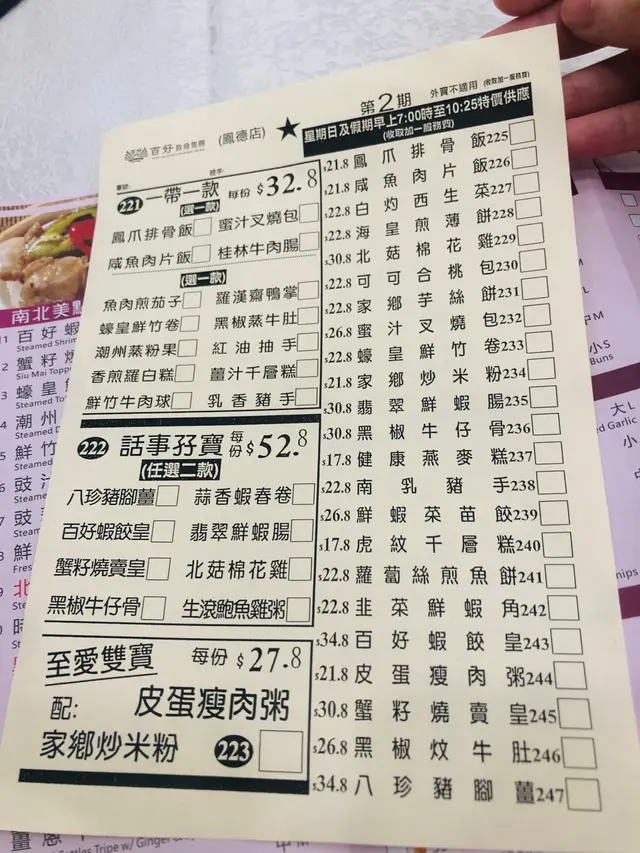 百好
(鳳德店)
第2期
外賣不適用 (收取加一服務費)
星期日及假期早上7:00時至10:25特價供應
(收取加一服務費)
221 一帶一款 每份 $32.8
(選一款)
鳳爪排骨飯 蜜汁叉燒包
咸魚肉片飯 桂林牛肉腸
(選一款)
魚肉煎茄子 羅漢齋鴨掌
蠔皇鮮竹卷 黑椒蒸牛肚
潮州蒸粉果 紅油抽手
香煎羅白糕 薑汁千層糕
鮮竹牛肉球 乳香豬手
222 話事孖寶 每份 $52.8
(任選二款)
八珍豬腳薑 蒜香蝦春卷
百好蝦餃皇 翡翠鮮蝦腸
蟹籽燒賣皇 北菇棉花雞
黑椒牛仔骨 生滾鮑魚雞粥
至愛雙寶 每份 $27.8
配: 皮蛋瘦肉粥
家鄉炒米粉 223
$21.8 鳳爪排骨飯225
$21.8 咸魚肉片飯226
$22.8 白灼西生菜227
$22.8 海皇煎薄餅228
$30.8 北菇棉花雞229
$22.8 可可合桃包230
$22.8 家鄉芋絲餅231
$26.8 蜜汁叉燒包232
$22.8 蠔皇鮮竹卷233
$21.8 家鄉炒米粉234
$30.8 翡翠鮮蝦腸235
$30.8 黑椒牛仔骨236
$17.8 健康燕麥糕237
$22.8 南乳豬手238
$26.8 鮮蝦菜苗餃239
$17.8 虎紋千層糕240
$22.8 蘿蔔絲煎魚餅241
$22.8 韭菜鮮蝦角242
$34.8 百好蝦餃皇243
$21.8 皮蛋瘦肉粥244
$30.8 蟹籽燒賣皇245
$26.8 黑椒炆牛肚246
$34.8 八珍豬腳薑247
南北美點
百好蝦
Steamed Shrim
蟹籽燒
Siu Mai Toppe
蠔皇
Steamed To
潮州
Steamed D
鮮竹
Steamed
豉汁
Steam
豉
Stea
鮮
Fres
北
Stea
時
小S
Buns
大L
d Garlic
小
hips
Cattles Tripe w/ Ginger